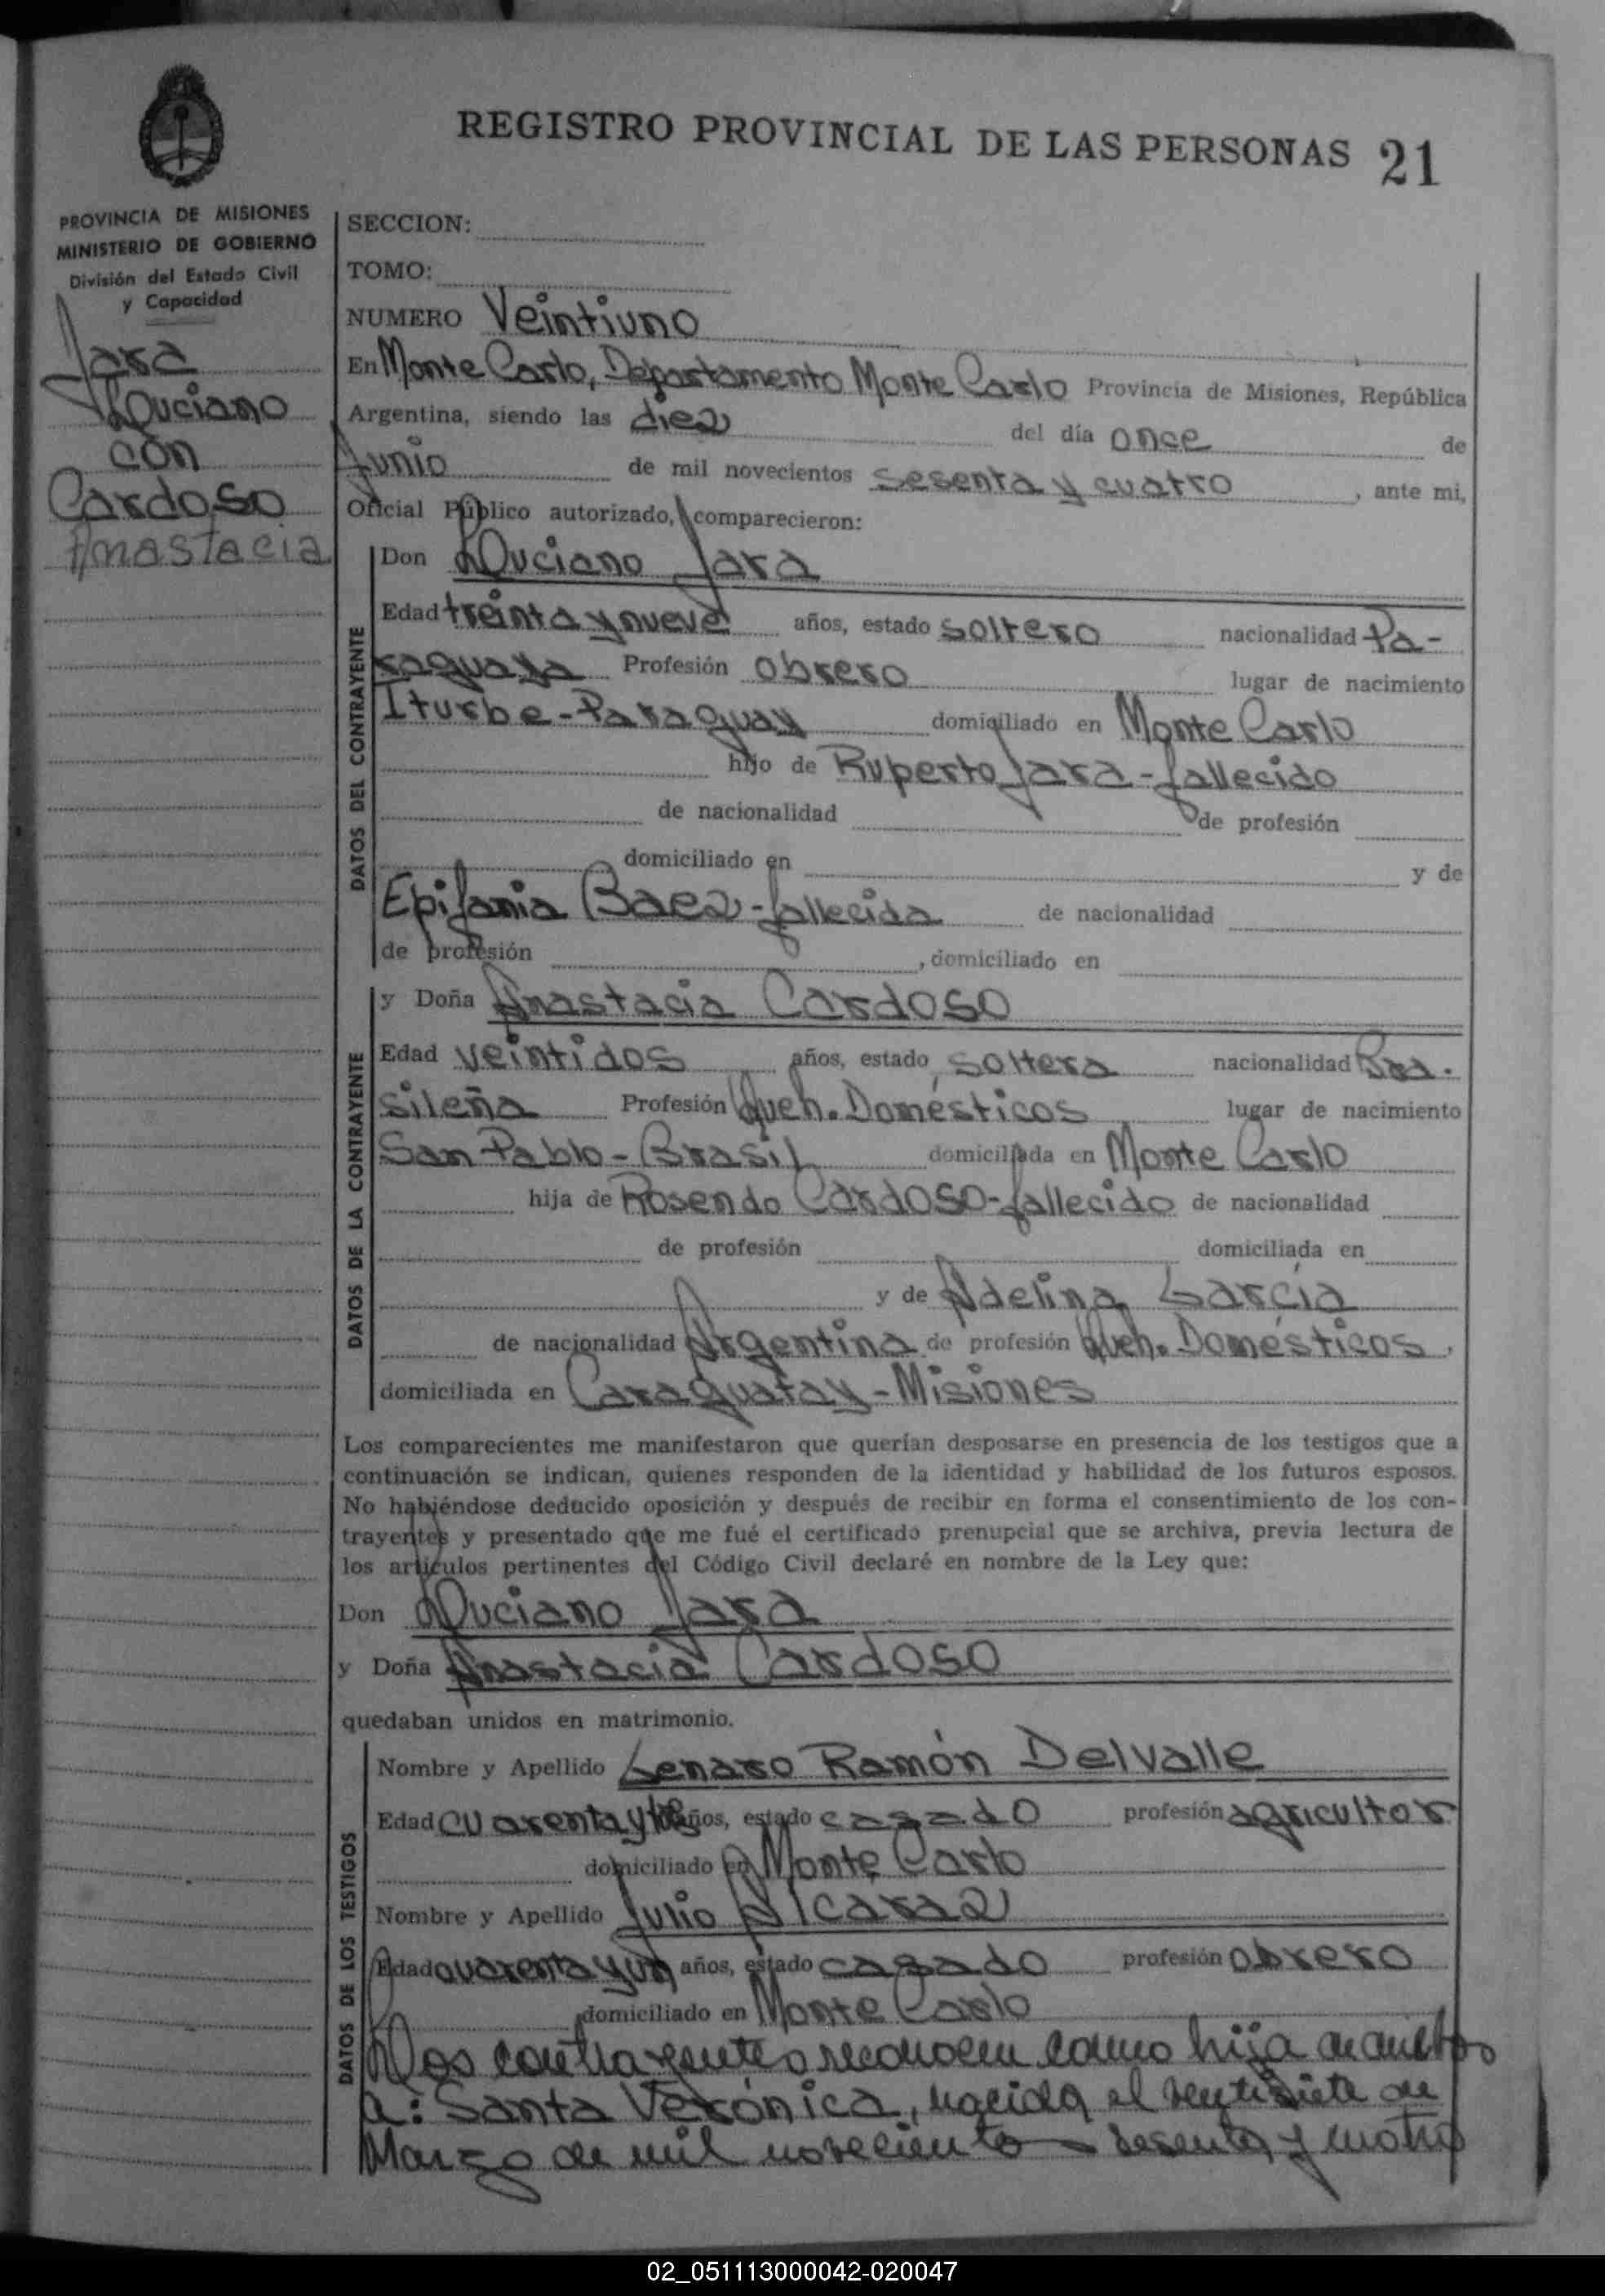 REGISTRO PROVINCIAL DE LAS PERSONAS 21
PROVINCIA DE MISIONES
MINISTERIO DE GOBIERNO
División del Estado Civil
y Capacidad
Jara
Luciano
con
Cardoso
Anastacia
SECCION:
TOMO:
NUMERO Veintiuno
En Monte Carlo, Departamento Monte Carlo Provincia de Misiones, República
Argentina, siendo las diez del día once de
Junio de mil novecientos sesenta y cuatro, ante mi,
Oficial Público autorizado, comparecieron:
DATOS DEL CONTRAYENTE
Don Luciano Jara
Edad treinta y nueve años, estado soltero nacionalidad Pa-
raguaya Profesión obrero lugar de nacimiento
Iturbe-Paraguay domiciliado en Monte Carlo
hijo de Ruperto Jara-fallecido
de nacionalidad de profesión
domiciliado en y de
Epifania Baez-fallecida de nacionalidad
de profesión , domiciliado en
DATOS DE LA CONTRAYENTE
y Doña Anastacia Cardoso
Edad veintidos años, estado soltera nacionalidad Bra-
sileña Profesión Queh. Domésticos lugar de nacimiento
San Pablo-Brasil domiciliada en Monte Carlo
hija de Rosendo Cardoso-fallecido de nacionalidad
de profesión domiciliada en
y de Adelina García
de nacionalidad Argentina de profesión Queh. Domésticos,
domiciliada en Caraguatay-Misiones
Los comparecientes me manifestaron que querían desposarse en presencia de los testigos que a
continuación se indican, quienes responden de la identidad y habilidad de los futuros esposos.
No habiéndose deducido oposición y después de recibir en forma el consentimiento de los con-
trayentes y presentado que me fué el certificado prenupcial que se archiva, previa lectura de
los artículos pertinentes del Código Civil declaré en nombre de la Ley que:
Don Luciano Jara
y Doña Anastacia Cardoso
quedaban unidos en matrimonio.
DATOS DE LOS TESTIGOS
Nombre y Apellido Genaro Ramón Delvalle
Edad cuarenta y tres años, estado casado profesión agricultor
domiciliado en Monte Carlo
Nombre y Apellido Julio Alcaraz
Edad cuarenta y un años, estado casado profesión obrero
domiciliado en Monte Carlo
Los contrayentes reconocen como hija de ambos
a: Santa Verónica, nacida el veintisiete de
Marzo de mil novecientos sesenta y cuatro
02_051113000042-020047